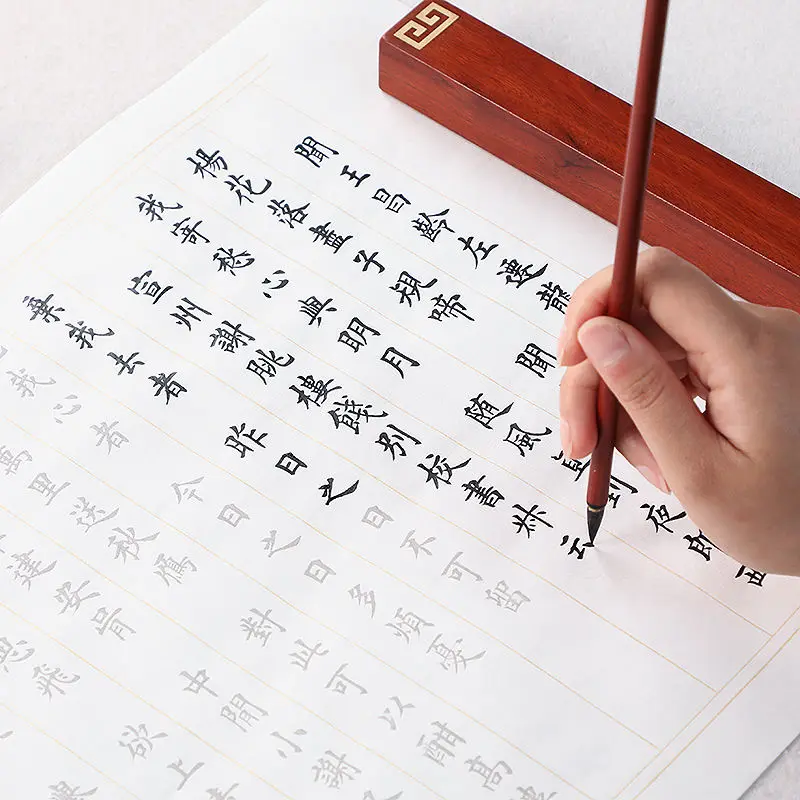 聞王昌齡左遷龍
楊花落盡子規啼 聞
我寄愁心與明月 随風直到夜郎西
宣州謝朓樓餞別校書叔云
棄我去者 昨日之日不可留
我心者 今日之日多煩憂
萬里送秋鴈 對此可以酣高
建安骨 中間小謝
思飛 欲上